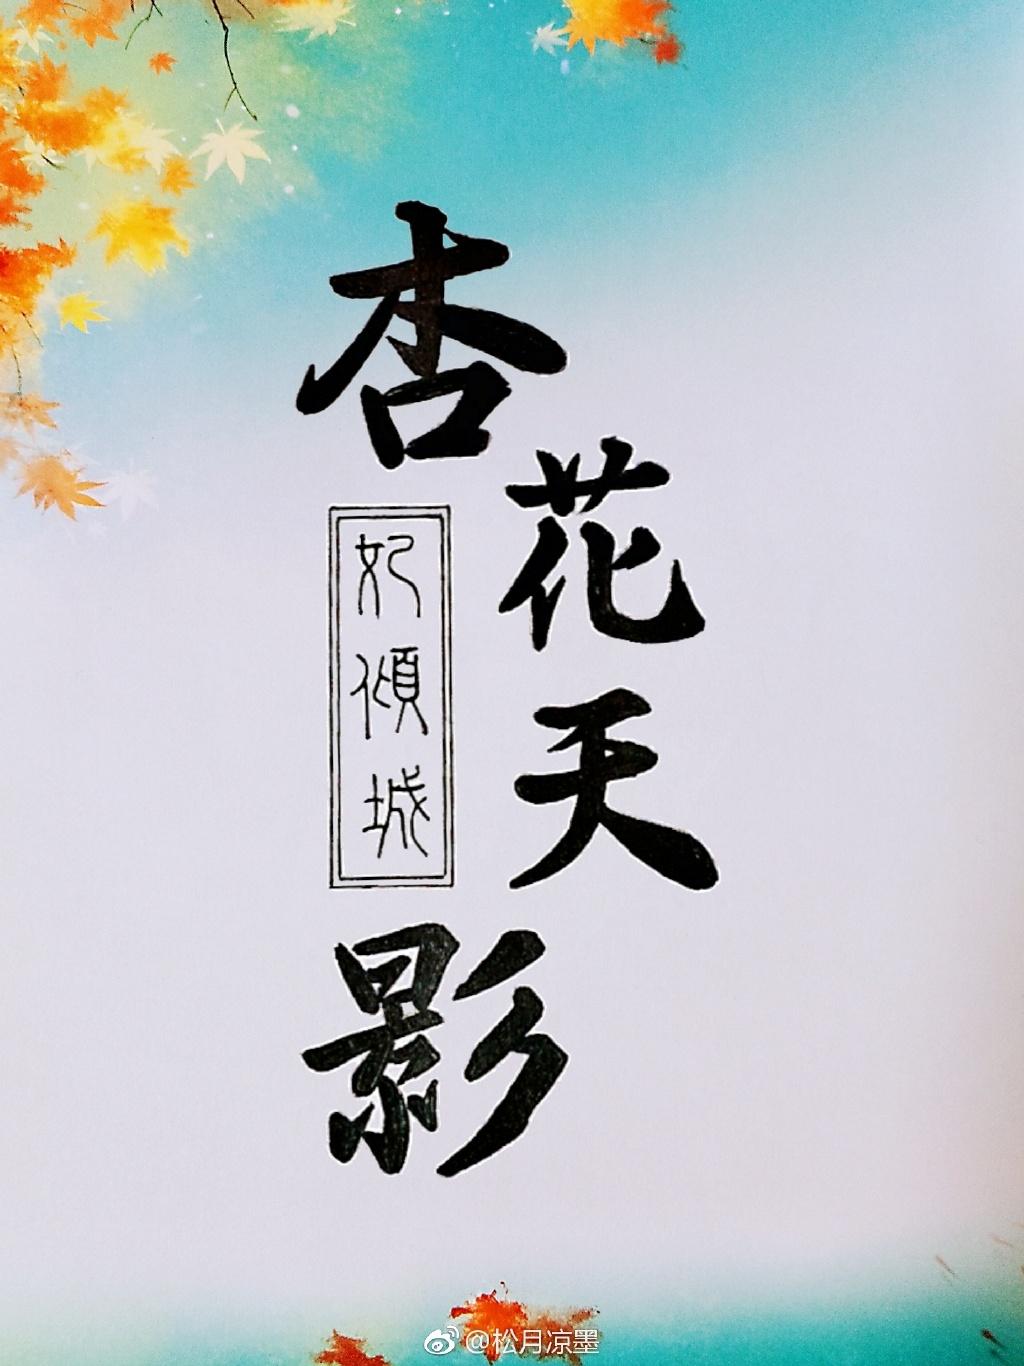 杏花天影
妃倾城
@松月凉墨